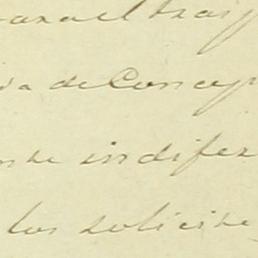 para el trasp
da de Concep
nte indifer
los solicite